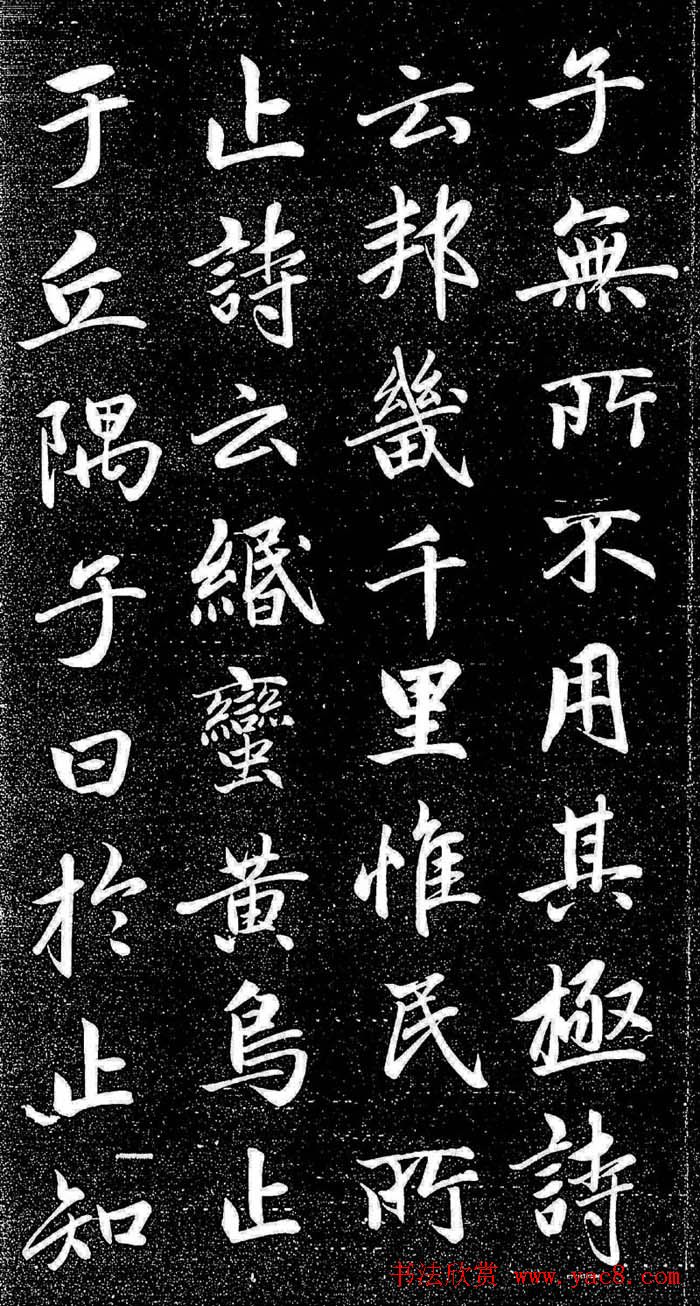 子無所不用其極詩
云邦畿千里惟民所
止詩云緡蠻黃鳥止
于丘隅子曰於止知
书法欣赏 www.yac8.com